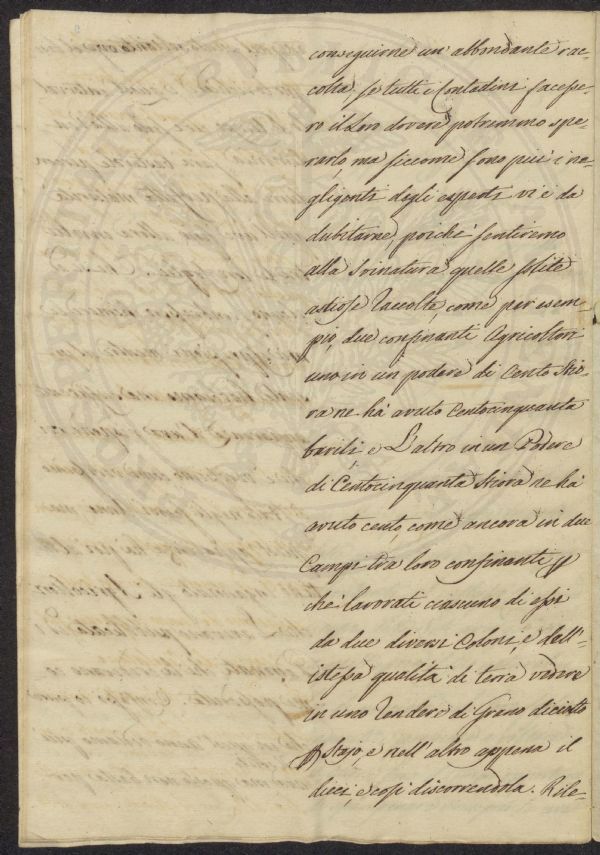 conseguirne un' abbondante rac=
colta, se tutti i Contadini facesse=
ro il Loro dovere potremmo spe=
rarlo, ma siccome sono più i ne=
gligenti degli esperti vi è da
dubitarne, poiché sentiremo
alla Svinatura quelle solite
astiose raccolte, come per esem=
pio, due confinanti Agricoltori
uno in un podere di Cento Stio=
ra ne há avuto Centocinquanta
barili, e L'altro in un Podere
di Centocinquanta Stiora ne há
avuto cento, come ancora in due
Campi tra loro confinanti p
ché lavorati ciascuno di essi
da due diversi Coloni, e dell'
istessa qualità di terra vedere
in uno rendere di Grano diciotto
p Stajo, e nell' altro appena il
dieci, e così discorrendola. Rile=